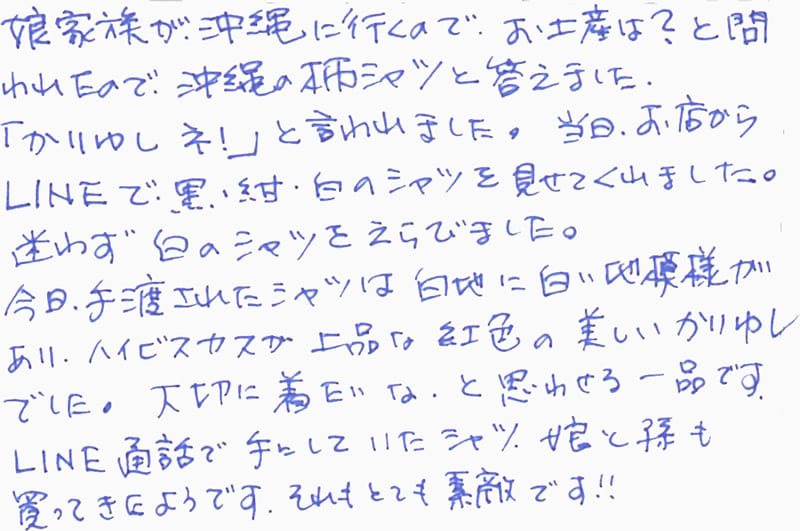 娘家族が、沖縄に行くので、お土産は？と問
われたので、沖縄の柄シャツと答えました。
「かりゆしネ！」と言われました。当日、お店から
LINEで、黒・紺・白のシャツを見せてくれました。
迷わず白のシャツをえらびました。
今日、手渡されたシャツは白地に白い地模様が
あり、ハイビスカスが上品な紅色の美しいかりゆし
でした。大切に着たいな、と思わせる一品です。
LINE通話で手にしていたシャツ、娘と孫も
買ってきたようです、それもとても素敵です!!